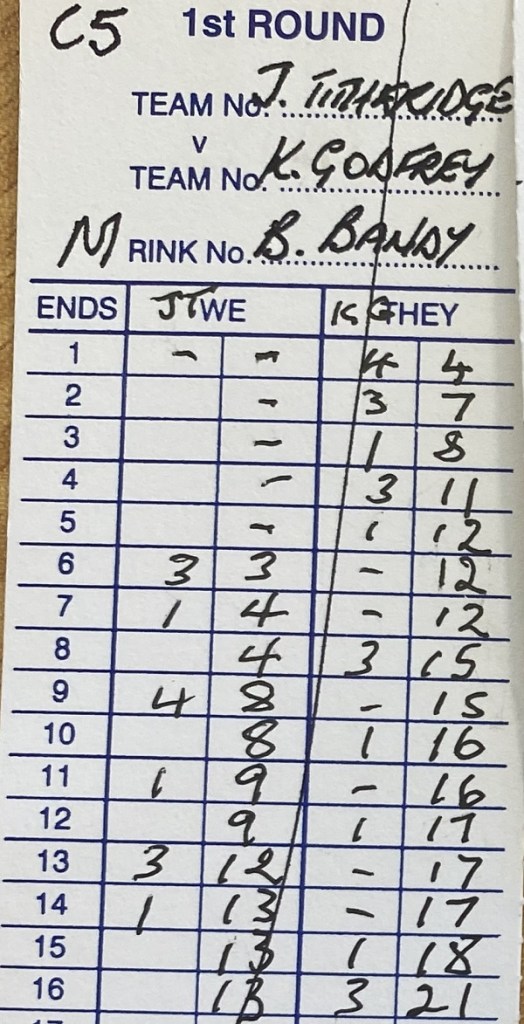 C5 1st ROUND
TEAM No. J. TITHERIDGE
v
TEAM No. K. GODFREY
M RINK No. B. BANDY
ENDS JT WE KG THEY
1 - - 4 4
2 - 3 7
3 - 1 8
4 - 3 11
5 - 1 12
6 3 3 - 12
7 1 4 - 12
8 4 3 15
9 4 8 - 15
10 8 1 16
11 1 9 - 16
12 9 1 17
13 3 12 - 17
14 1 13 - 17
15 13 1 18
16 13 3 21